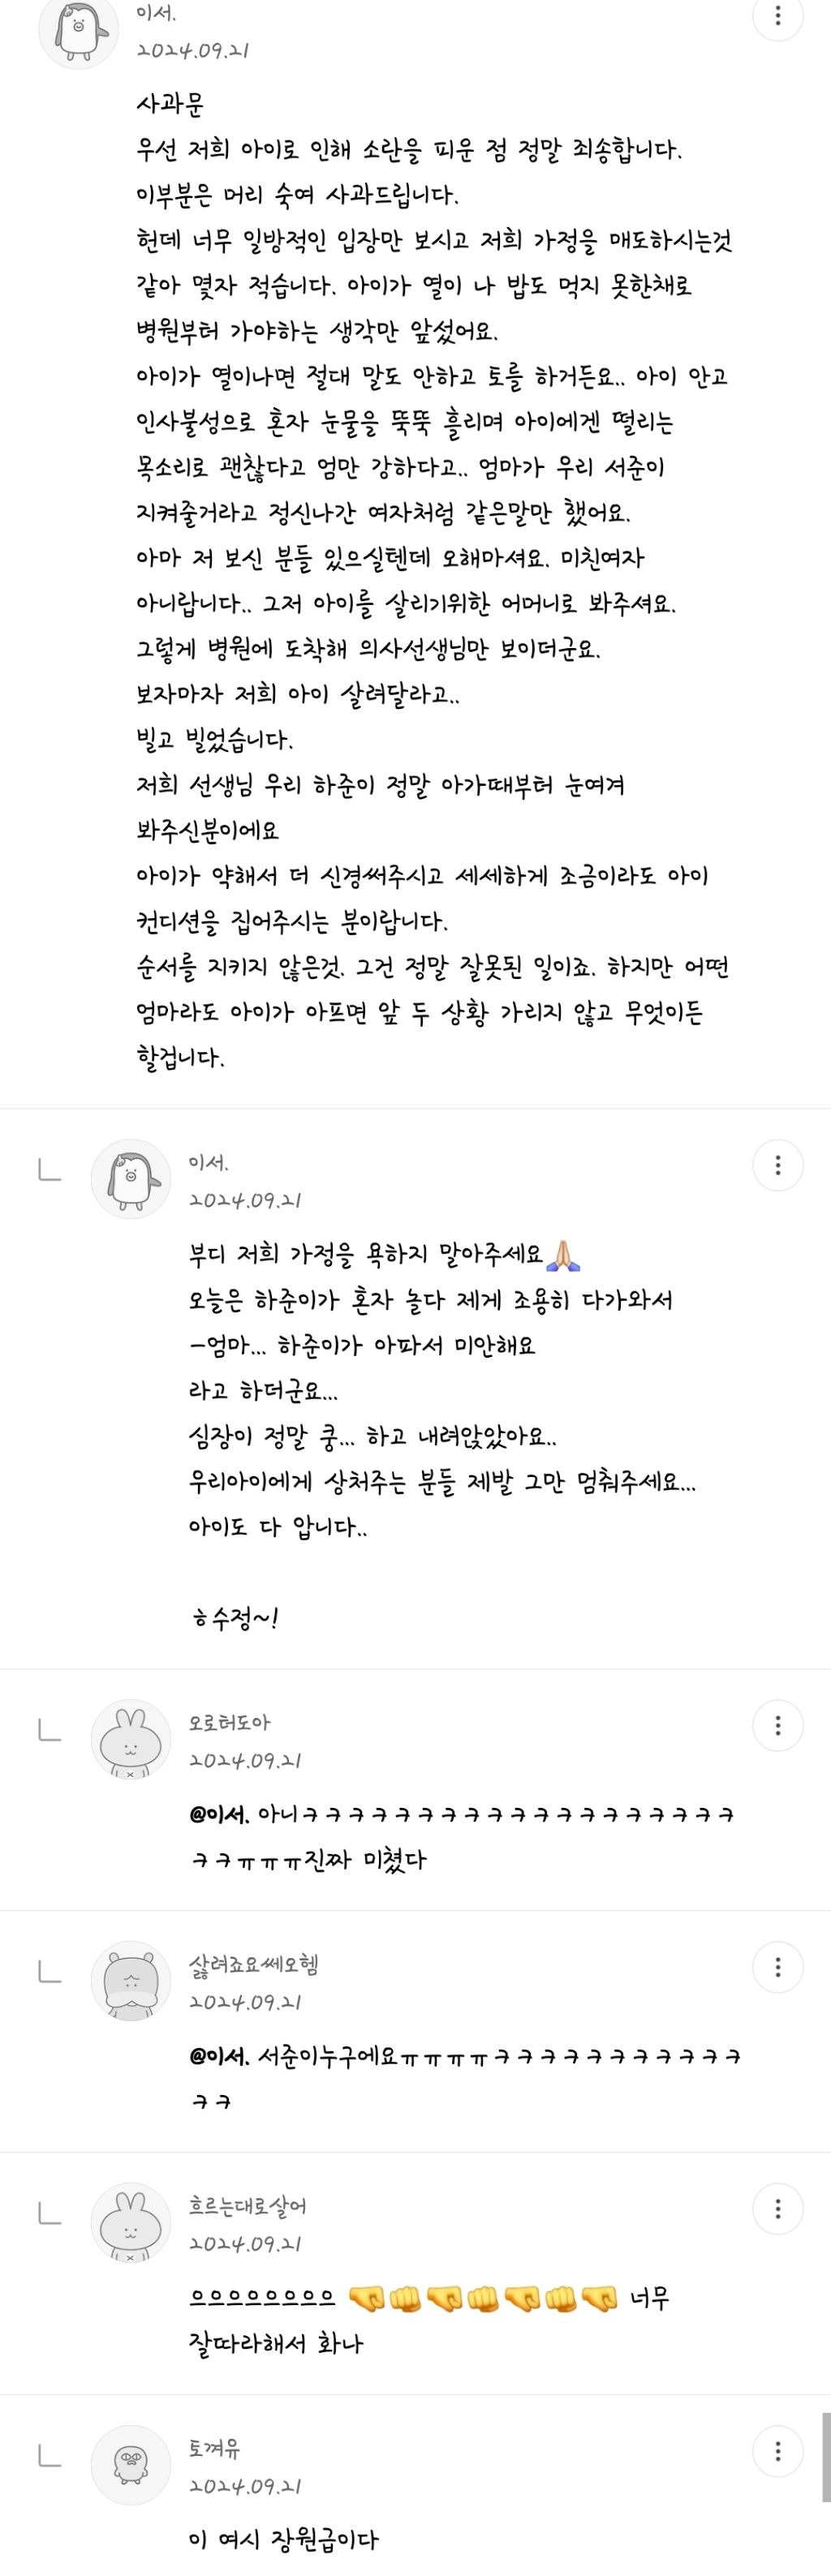 이서.
2024.09.21
사과문
우선 저희 아이로 인해 소란을 피운 점 정말 죄송합니다.
이부분은 머리 숙여 사과드립니다.
헌데 너무 일방적인 입장만 보시고 저희 가정을 매도하시는것
같아 몇자 적습니다. 아이가 열이 나 밥도 먹지 못한채로
병원부터 가야하는 생각만 앞섰어요.
아이가 열이나면 절대 말도 안하고 토를 하거든요.. 아이 안고
인사불성으로 혼자 눈물을 뚝뚝 흘리며 아이에겐 떨리는
목소리로 괜찮다고 엄만 강하다고.. 엄마가 우리 서준이
지켜줄거라고 정신나간 여자처럼 같은말만 했어요.
아마 저 보신 분들 있으실텐데 오해마셔요. 미친여자
아니랍니다.. 그저 아이를 살리기위한 어머니로 봐주셔요.
그렇게 병원에 도착해 의사선생님만 보이더군요.
보자마자 저희 아이 살려달라고..
빌고 빌었습니다.
저희 선생님 우리 하준이 정말 아가때부터 눈여겨
봐주신분이에요
아이가 약해서 더 신경써주시고 세세하게 조금이라도 아이
컨디션을 집어주시는 분이랍니다.
순서를 지키지 않은것. 그건 정말 잘못된 일이죠. 하지만 어떤
엄마라도 아이가 아프면 앞 두 상황 가리지 않고 무엇이든
할겁니다.
이서.
2024.09.21
부디 저희 가정을 욕하지 말아주세요🙏🏻
오늘은 하준이가 혼자 놀다 제게 조용히 다가와서
-엄마... 하준이가 아파서 미안해요
라고 하더군요...
심장이 정말 쿵... 하고 내려앉았아요..
우리아이에게 상처주는 분들 제발 그만 멈춰주세요...
아이도 다 압니다..
ㅎ수정~!
오로터도아
2024.09.21
@이서. 아니ㅋㅋㅋㅋㅋㅋㅋㅋㅋㅋㅋㅋㅋㅋㅋㅋㅋㅋㅋ
ㅋㅋㅠㅠㅠ진짜 미쳤다
살려죠요쎄오헴
2024.09.21
@이서. 서준이누구에요ㅠㅠㅠㅠㅋㅋㅋㅋㅋㅋㅋㅋㅋㅋㅋ
ㅋㅋ
흐르는대로살어
2024.09.21
으으으으으으으으 🤜👊🤜👊🤜👊🤜 너무
잘따라해서 화나
토껴유
2024.09.21
이 여시 장원급이다